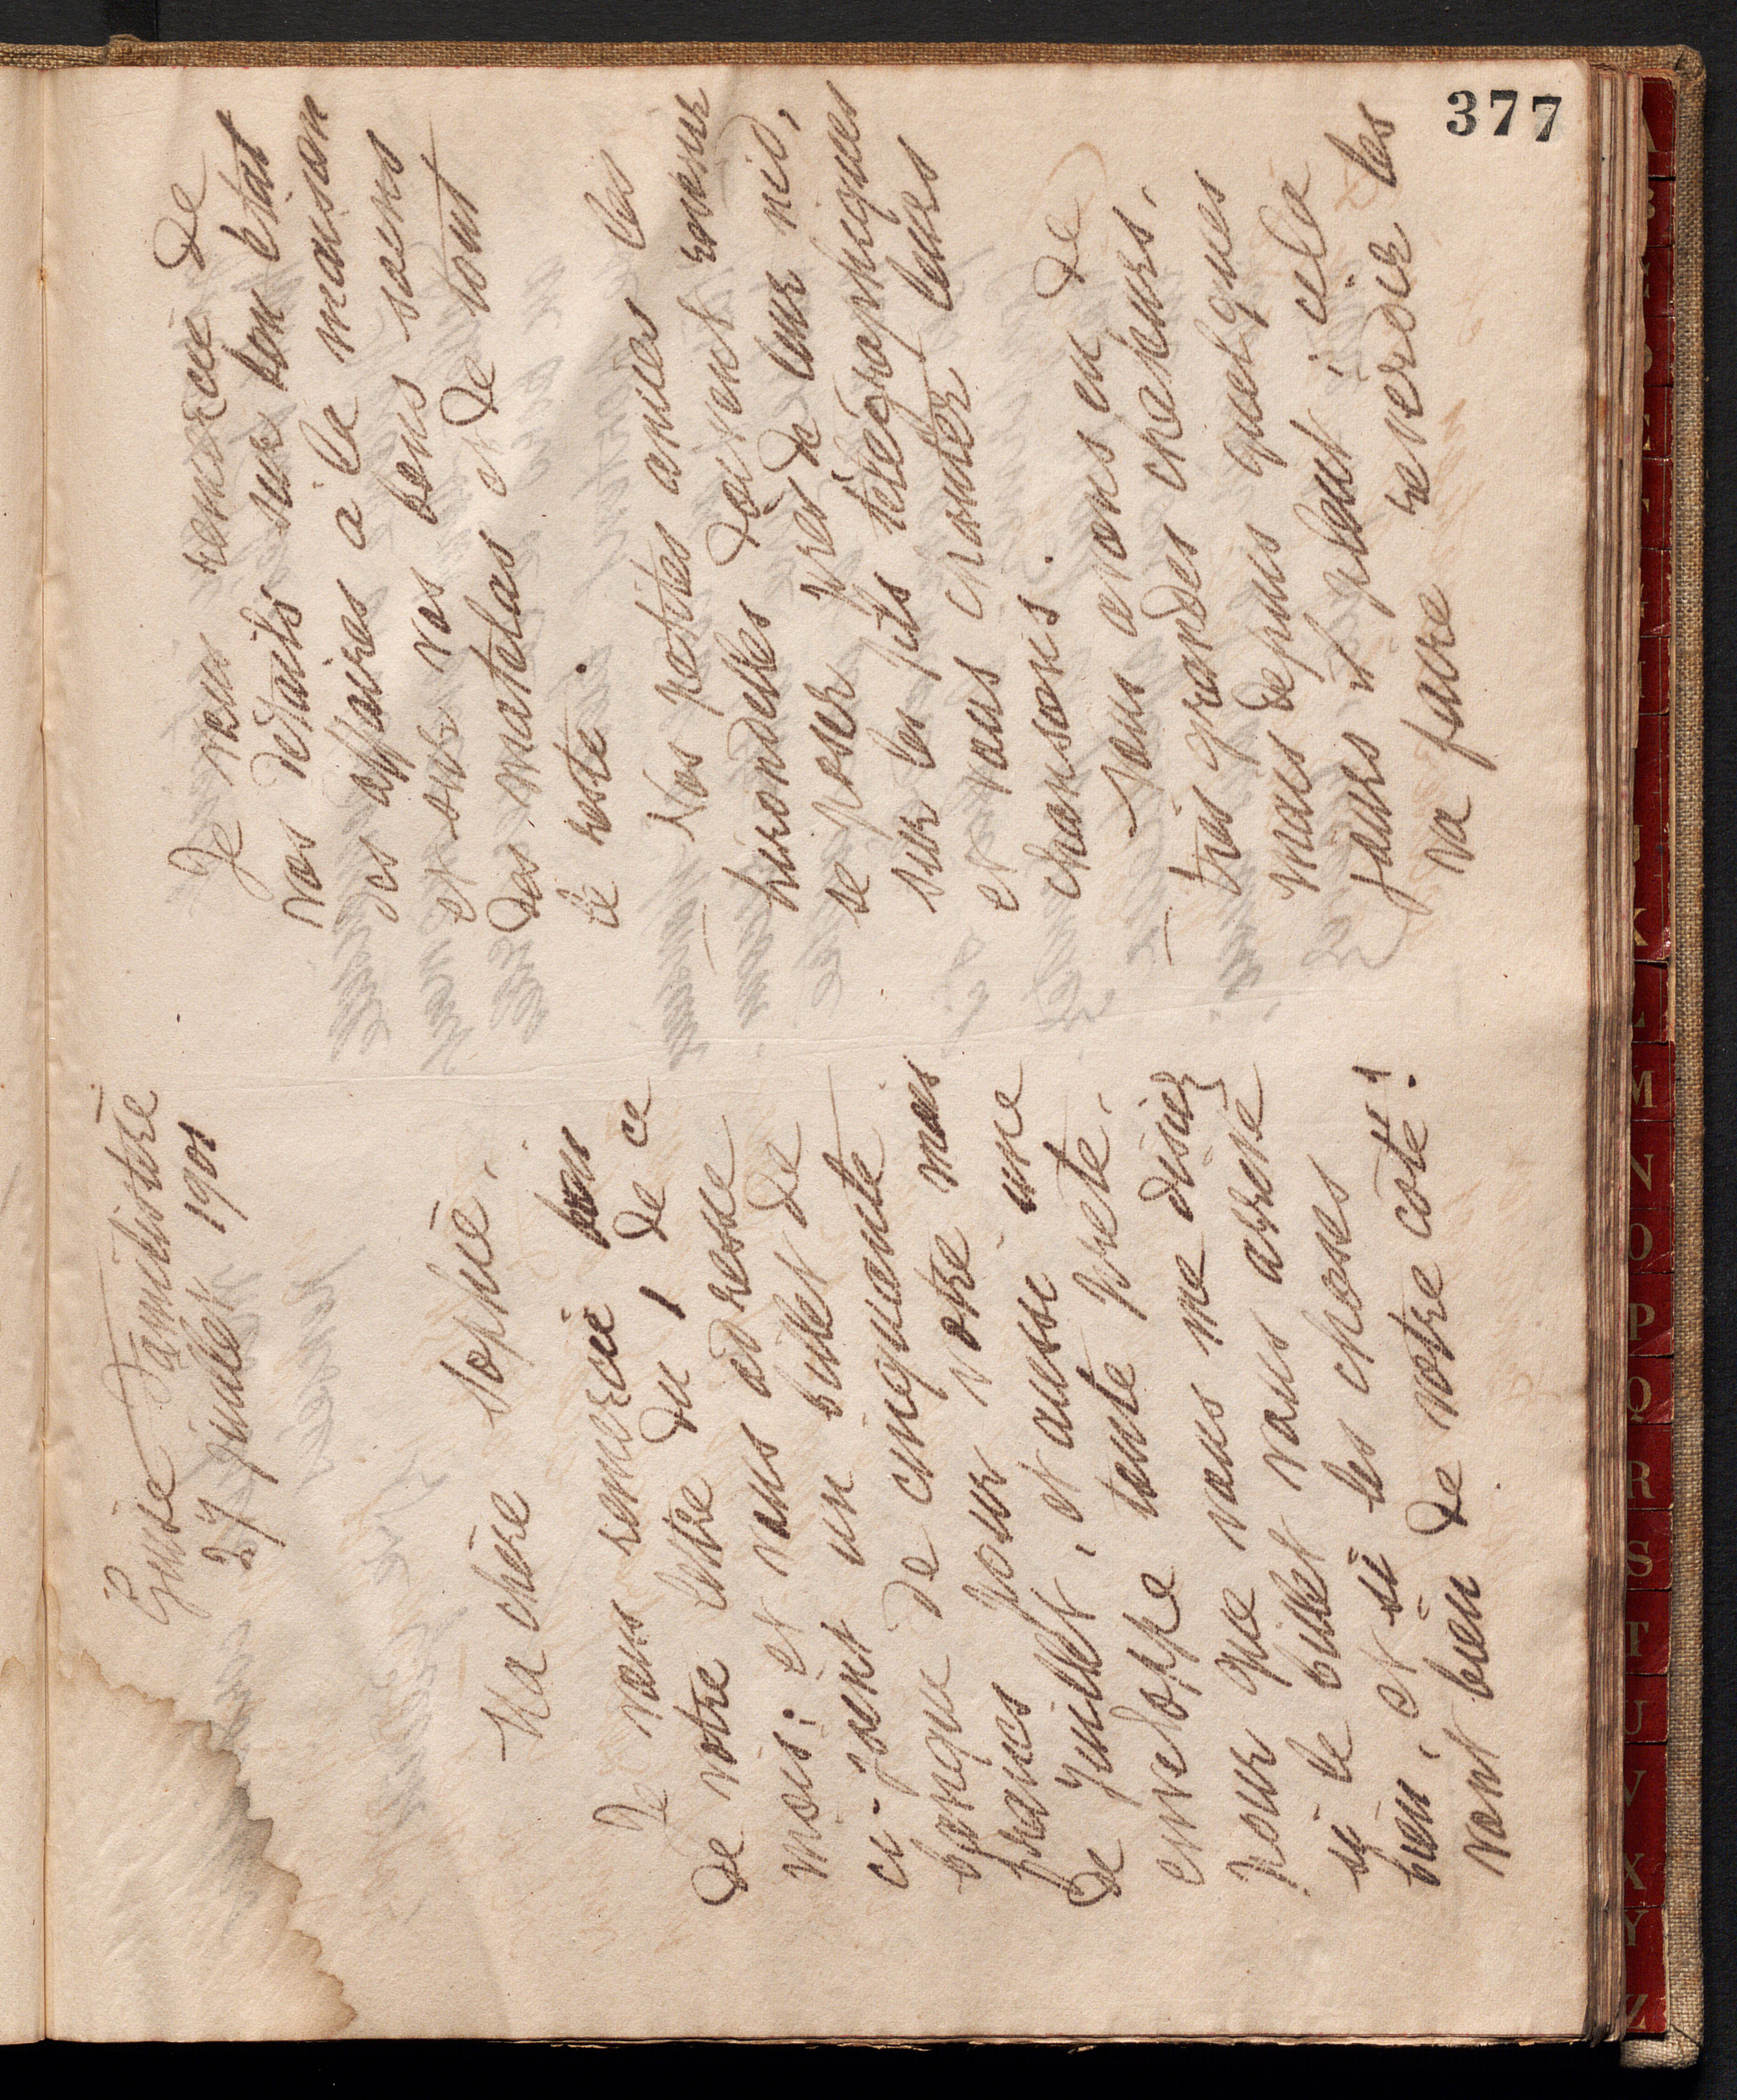 377
Guise Familistère
27 juillet 1901
Ma chère Sophie,
Je vous remercie bien
de votre lettre du 1 de ce
mois; et vous adresse
ci-joint un billet de
banque de cinquante
francs pour votre mois
de Juillet, et aussi une
enveloppe toute prête,
pour que vous me disiez
si le billet vous arrive
bien, et si les choses
vont bien de votre côté.
Je vous remercie de
vos détails sur bon état
des affaires à la maison
et sur vos bons soins
des matelas et de tout
le reste.
Nos petites amies les
hirondelles doivent
se poser près de leur nid,
sur les fils télégraphiques
et vous chanter leurs
chansons.
Nous avons eu de
très grandes chaleurs,
mais depuis quelques
jours il pleut; cela
va faire reverdir les